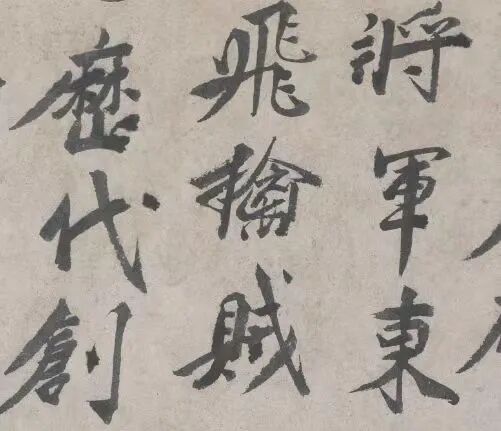 將軍東
飛擒賊
歷代創